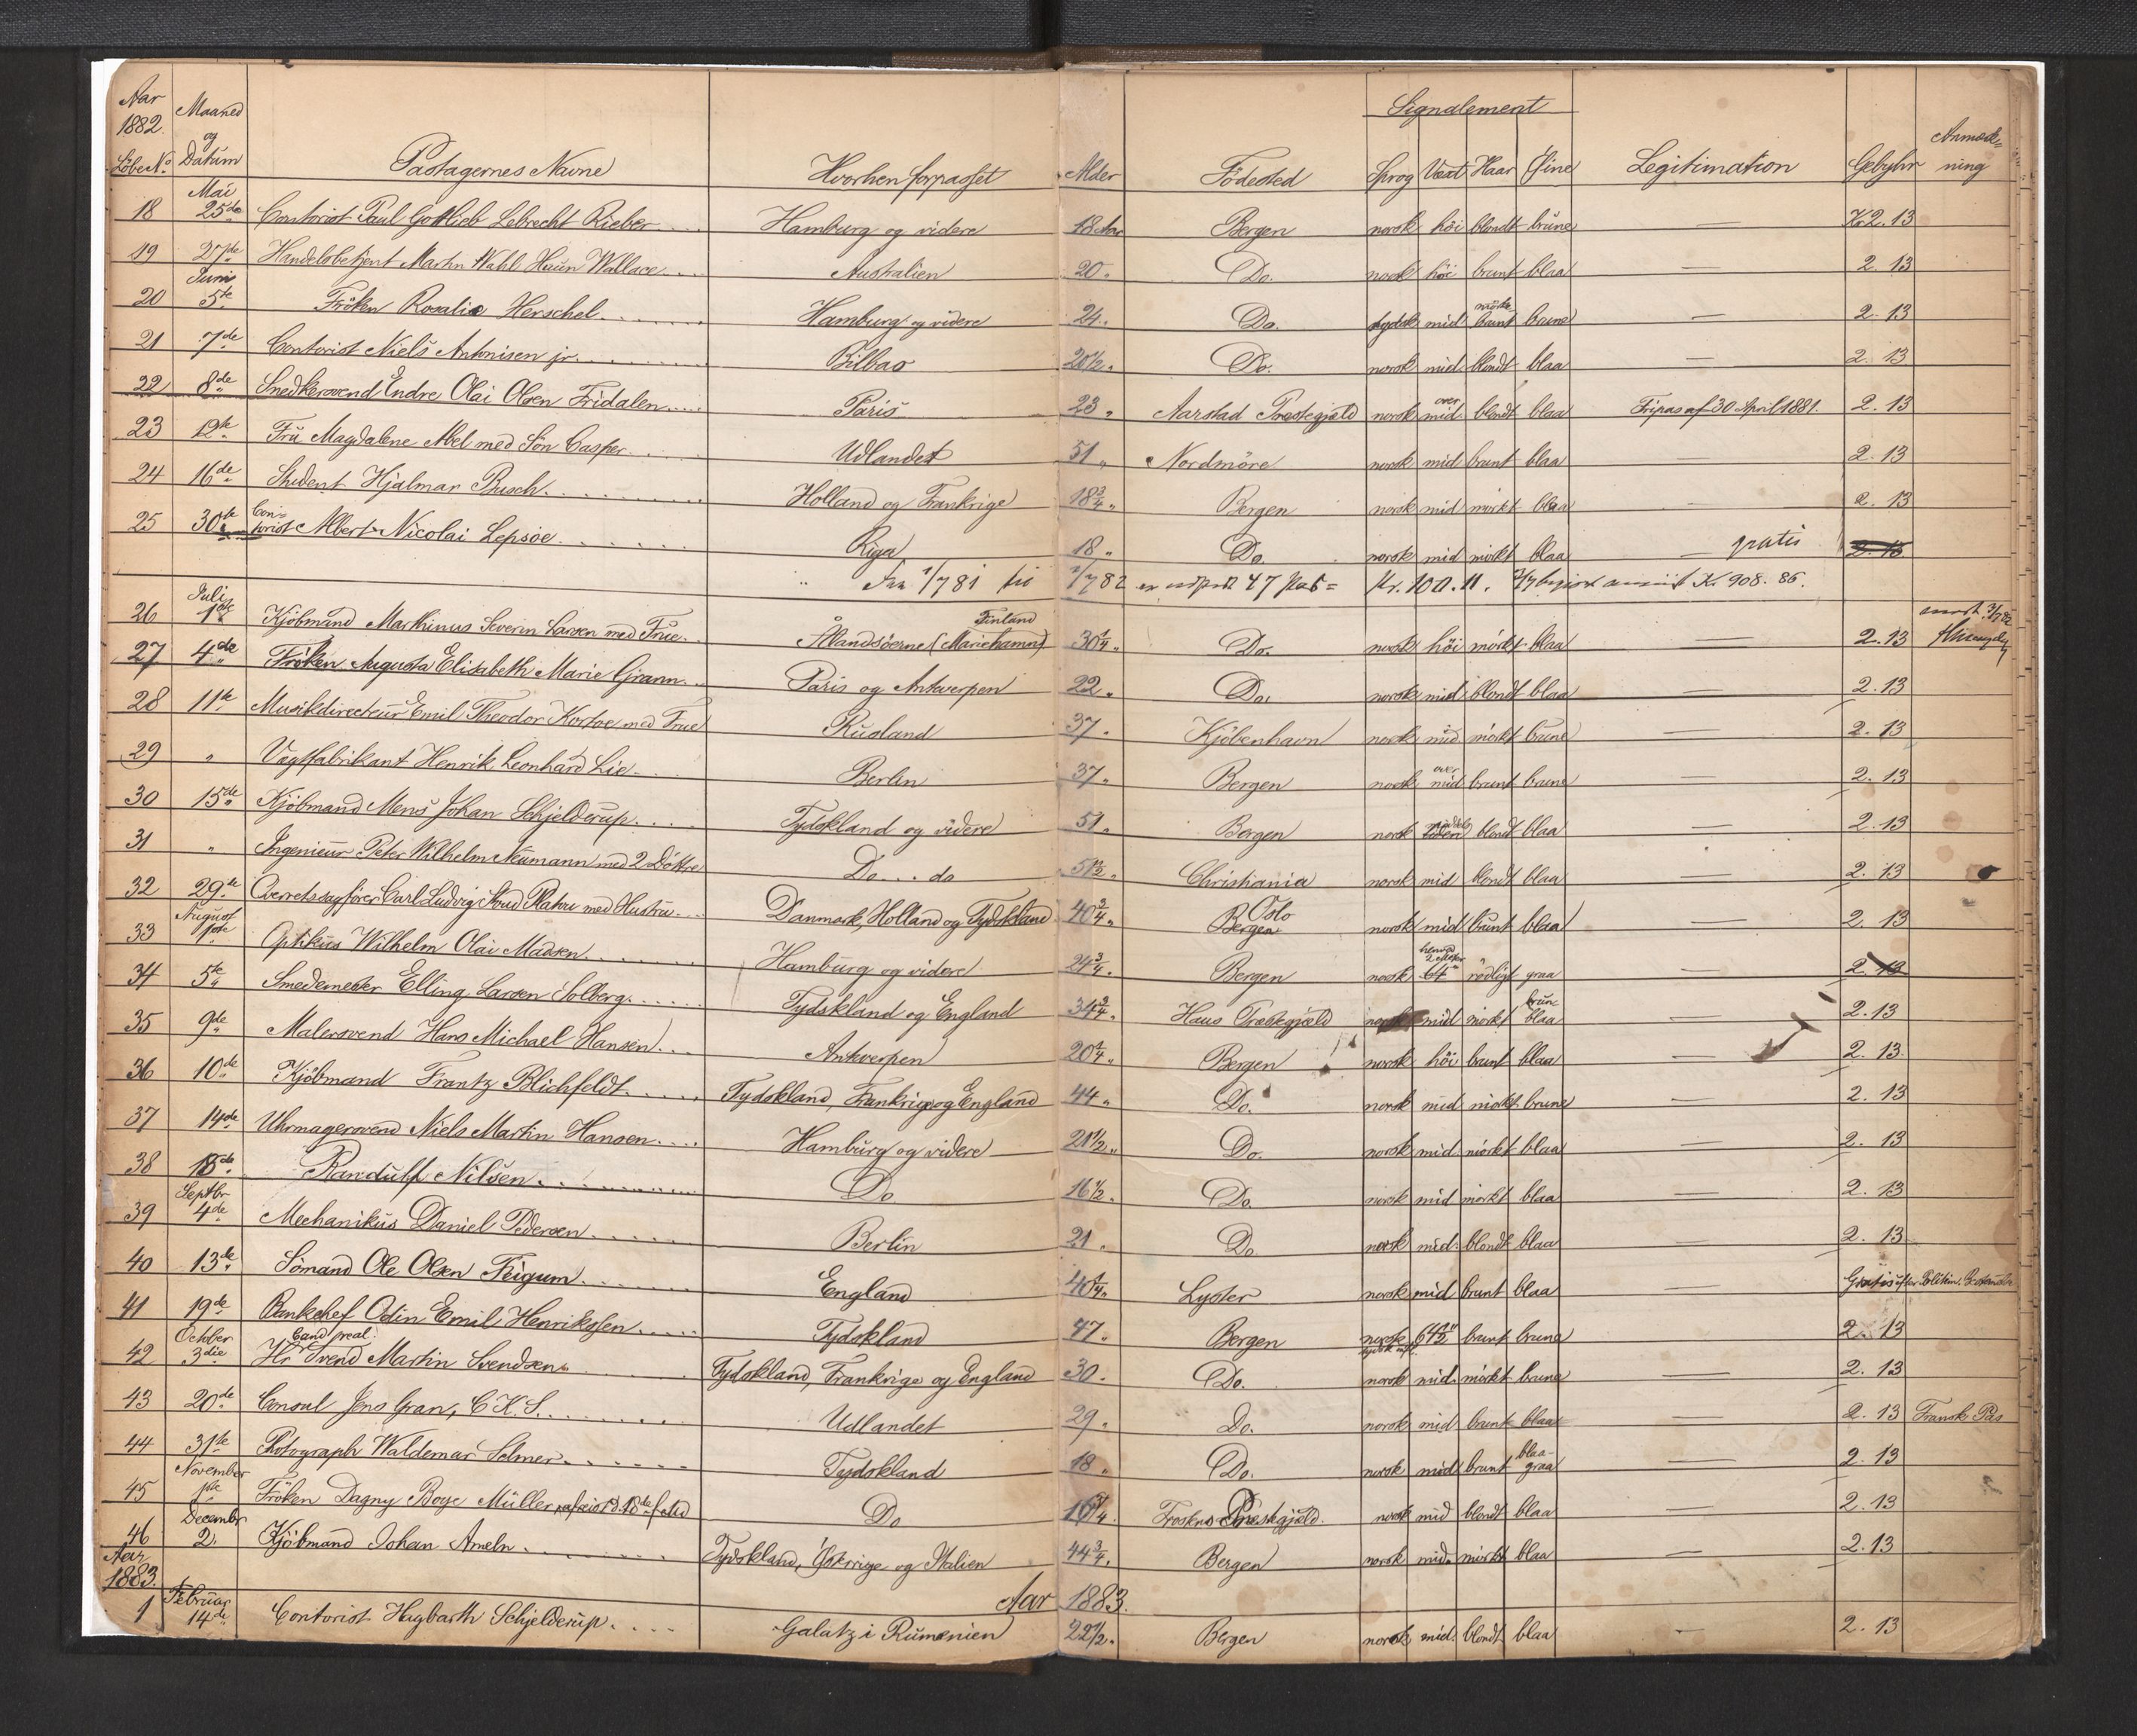 Aar 1882. Löbe No. Maaned og Datum Passagernes Navne Hvorhen forpasset Alder Födested Signalement Sprog Vext Haar Öine Legitimation Gebyhr Anmærkning
Mai
18 25de Contorist Paul Gottlieb Lebrecht Rieber Hamburg og videre 18 Aar Bergen norsk höi blondt brune — Kr 2.13
19 27de Handelsbetjent Martin Wahl Huun Wallace Australien 20 Do. norsk höi brunt blaa — 2.13
Juni
20 5te Fröken Rosalie Herschel Hamburg og videre 24 Do. tydsk mid mörke brunt brune — 2.13
21 7de Contorist Niels Antonisen jr. Bilbao 20 1/2 Do. norsk mid blondt blaa — 2.13
22 8de Snedkersvend Endre Olai Olsen Fridalen Paris 23 Aarstad Præstegjæld norsk over mid blondt blaa Fripas af 30 April 1881. 2.13
23 12te Fru Magdalene Abel med Sön Casper Udlandet 51 Nordmöre norsk mid brunt blaa — 2.13
24 16de Student Hjalmar Busch Holland og Frankrige 18 3/4 Bergen norsk mid mörkt blaa — 2.13
25 30te Contorist Albert Nicolai Lepsöe Riga 18 Do. norsk mid mörkt blaa — gratis 2.13
Fra 1/7 81 til 1/7 82 er udstedt 47 Pas = Kr. 100.11. Kr. 908.86.
Juli
26 1ste Kjöbmand Marthinus Severin Larsen med Frue Ålandsöerne (Mariehamn) Finland 30 1/4 Do. norsk höi mörkt blaa — 2.13
27 4de Fröken Augusta Elisabeth Marie Grann Paris og Antwerpen 22 Do. norsk mid blondt blaa — 2.13
28 11te Musikdirecteur Emil Theodor Hortoe med Frue Rusland 37 Kjöbenhavn norsk mid mörkt brune — 2.13
29 " Vægtfabrikant Henrik Leonhard Lie Berlin 37 Bergen norsk over mid brunt brune — 2.13
30 15de Kjöbmand Mens Johan Schjelderup Tydskland og videre 51 Bergen norsk middels blondt blaa — 2.13
31 " Ingenieur Peter Wilhelm Neumann med 2 Döttre Do. do 51 1/2 Christiania norsk mid blondt blaa — 2.13
32 29de Overretssagförer Carl Ludvig Stud Platou med Hustru Danmark, Holland og Tydskland 40 3/4 Oslo Bergen norsk mid brunt blaa 2.13
August
33 1ste Optikus Wilhelm Olai Madsen Hamburg og videre 24 3/4 Bergen norsk 64" rödligt graa 2.13
34 5te Smedemester Elling Larsen Solberg Tydskland og England 34 3/4 Haus Præstegjæld norsk mid mörkt brun blaa — 2.13
35 9de Malersvend Hans Michael Hansen Antwerpen 20 1/4 Bergen norsk höi brunt blaa — 2.13
36 10de Kjöbmand Frantz Blichfeldt Tydskland, Frankrige og England 44 Do. norsk mid mörkt brune 2.13
37 14de Uhrmagersvend Niels Martin Hansen Hamburg og videre 21 1/2 Do. norsk mid mörkt blaa — 2.13
38 18de Randulf Nilsen Do 16 1/2 Do. norsk mid mörkt blaa — 2.13
Septbr
39 4de Mechanikus Daniel Pedersen Berlin 21 Do norsk mid. blondt blaa — 2.13
40 13de Sömand Ole Olsen Feigum England 40 1/4 Lyster norsk mid brunt blaa — Gratis efter Politim.
41 19de Bankchef Odin Emil Henrikssen Tydskland 47 Bergen norsk 64 1/2" brunt brune 2.13
October
42 3die Hr Cand. real. Svend Martin Svendsen Tydskland, Frankrige og England 30 Do. norsk mid. mörkt brune — 2.13
43 20de Consul Jens Gran, C.K.S. Udlandet 29 Do. norsk mid brunt blaa — 2.13 Fransk Pas
44 31te Photograph Waldemar Selmer Tydskland 18 Do. norsk mid brunt blaa-graa — 2.13
November
45 1ste Fröken Dagny Boye Müller Do 16 1/4 Præstegjæld norsk mid blondt blaa — 2.13
Decembr
46 2. Kjöbmand Johan Ameln Tydskland, Östrrige og Italien 44 3/4 Bergen norsk mid. mörkt blaa — 2.13
Aar 1883. Aar 1883.
Februar
1 14de Contorist Hagbarth Schjelderup Galatz i Rumenien 22 1/2 Bergen norsk mid. blondt blaa — 2.13